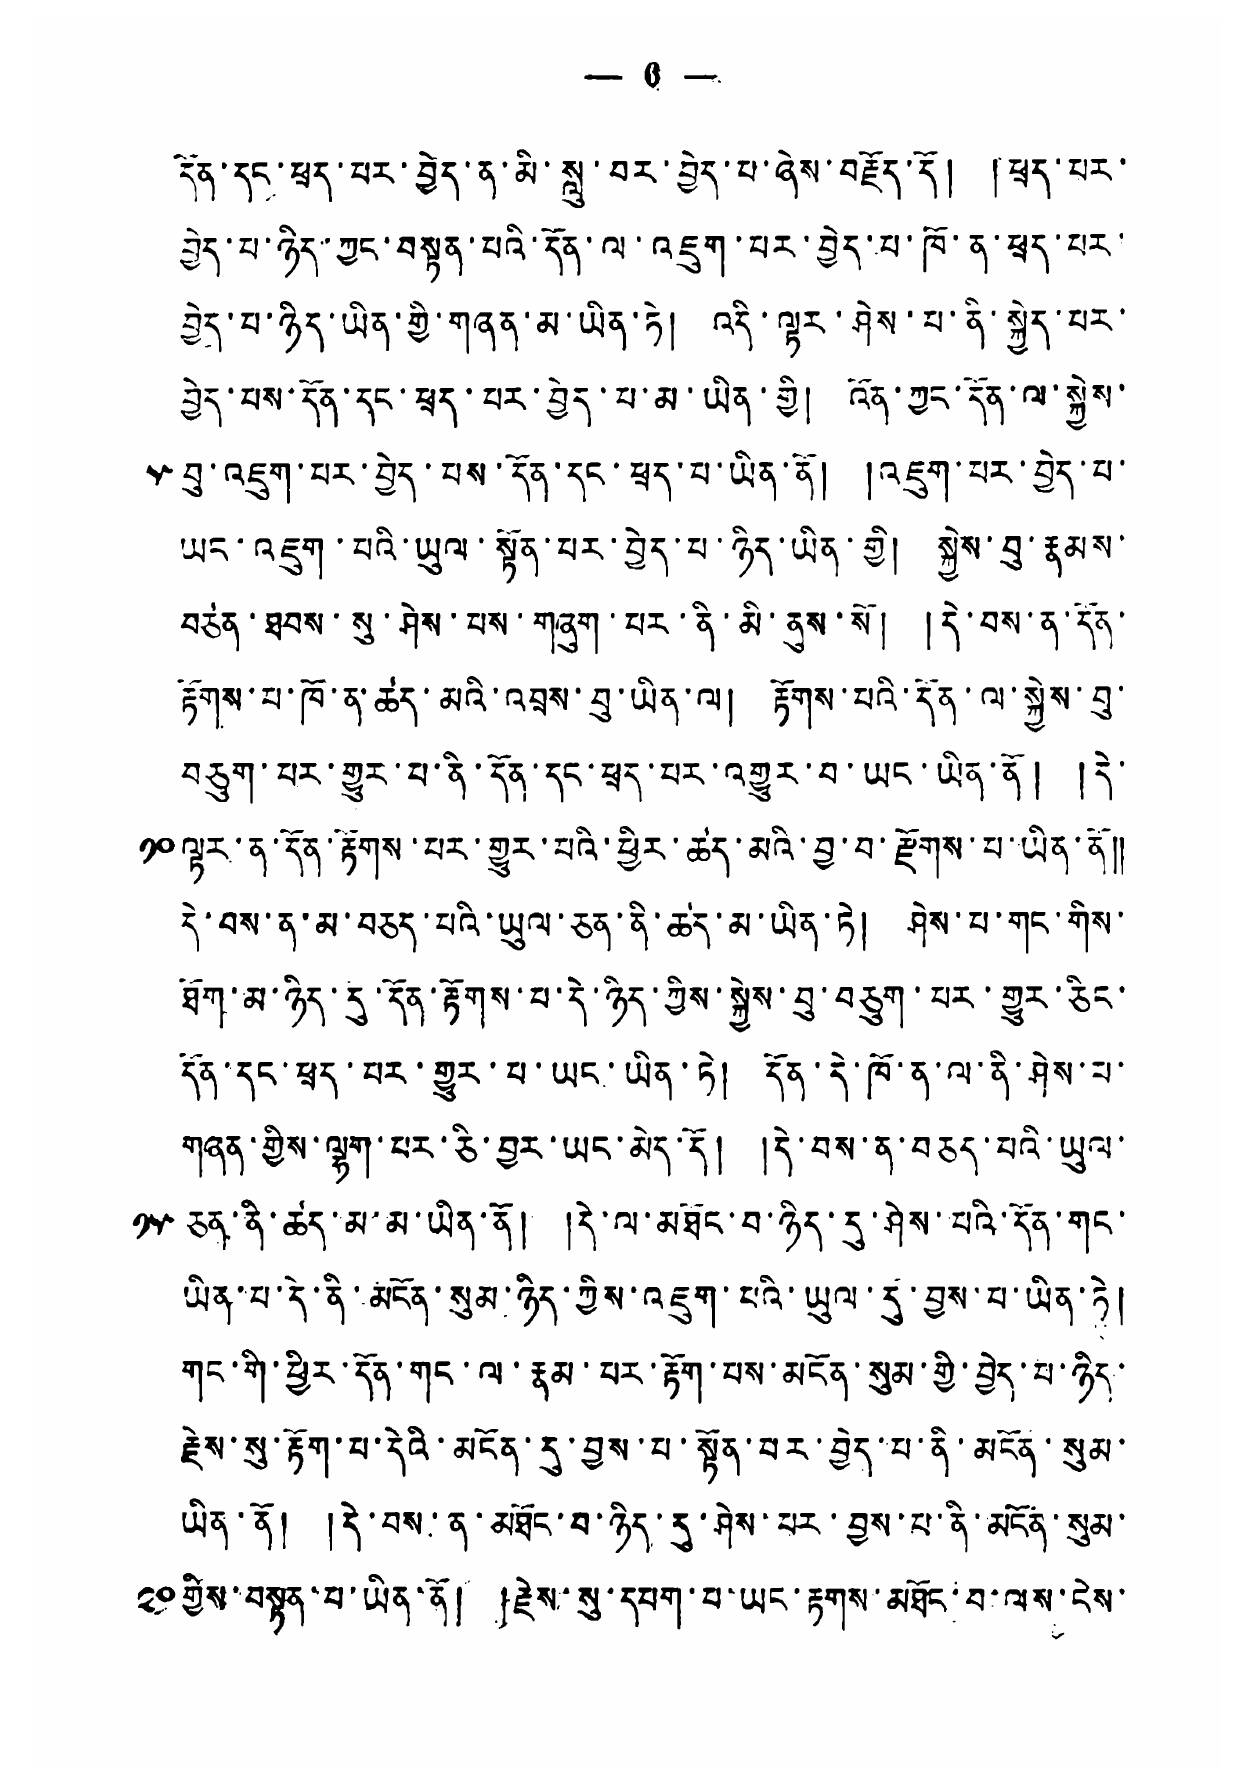 — ༦ —
དོན་དང་ཕྲད་པར་བྱེད་ན་མི་སླུ་བར་བྱེད་པ་ཞེས་བརྗོད་དོ། །ཕྲད་པར་
བྱེད་པ་ཉིད་ཀྱང་བསྟན་པའི་དོན་ལ་འཇུག་པར་བྱེད་པ་ཁོ་ན་ཕྲད་པར་
བྱེད་པ་ཉིད་ཡིན་གྱི་གཞན་མ་ཡིན་ཏེ། འདི་ལྟར་ཤེས་པ་ནི་སྐྱེད་པར་
བྱེད་པས་དོན་དང་ཕྲད་པར་བྱེད་པ་མ་ཡིན་གྱི། འོན་ཀྱང་དོན་ལ་སྐྱེས་
༥ བུ་འཇུག་པར་བྱེད་པས་དོན་དང་ཕྲད་པ་ཡིན་ནོ། །འཇུག་པར་བྱེད་པ་
ཡང་འཇུག་པའི་ཡུལ་སྟོན་པར་བྱེད་པ་ཉིད་ཡིན་གྱི། སྐྱེས་བུ་རྣམས་
བཙན་ཐབས་སུ་ཤེས་པས་གཞུག་པར་ནི་མི་ནུས་སོ། །དེ་བས་ན་དོན་
རྟོགས་པ་ཁོ་ན་ཚད་མའི་འབྲས་བུ་ཡིན་ལ། རྟོགས་པའི་དོན་ལ་སྐྱེས་བུ་
བཅུག་པར་གྱུར་པ་ནི་དོན་དང་ཕྲད་པར་འགྱུར་བ་ཡང་ཡིན་ནོ། །དེ་
༡༠ ལྟར་ན་དོན་རྟོགས་པར་གྱུར་པའི་ཕྱིར་ཚད་མའི་བྱ་བ་རྫོགས་པ་ཡིན་ནོ༎
དེ་བས་ན་མ་བཅད་པའི་ཡུལ་ཅན་ནི་ཚད་མ་ཡིན་ཏེ། ཤེས་པ་གང་གིས་
ཐོག་མ་ཉིད་དུ་དོན་རྟོགས་པ་དེ་ཉིད་ཀྱིས་སྐྱེས་བུ་བཅུག་པར་གྱུར་ཅིང་
དོན་དང་ཕྲད་པར་གྱུར་པ་ཡང་ཡིན་ཏེ། དོན་དེ་ཁོ་ན་ལ་ནི་ཤེས་པ་
གཞན་གྱིས་ལྷག་པར་ཅི་བྱར་ཡང་མེད་དོ། །དེ་བས་ན་བཅད་པའི་ཡུལ་
༡༥ ཅན་ནི་ཚད་མ་མ་ཡིན་ནོ། །དེ་ལ་མཐོང་བ་ཉིད་དུ་ཤེས་པའི་དོན་གང་
ཡིན་པ་དེ་ནི་མངོན་སུམ་ཉིད་ཀྱིས་འཇུག་པའི་ཡུལ་དུ་བྱས་པ་ཡིན་ཏེ།
གང་གི་ཕྱིར་དོན་གང་ལ་རྣམ་པར་རྟོག་པས་མངོན་སུམ་གྱི་བྱེད་པ་ཉིད་
རྗེས་སུ་རྟོག་པ་དེའི་མངོན་དུ་བྱས་པ་སྟོན་པར་བྱེད་པ་ནི་མངོན་སུམ་
ཡིན་ནོ། །དེ་བས་ན་མཐོང་བ་ཉིད་དུ་ཤེས་པར་བྱས་པ་ནི་མངོན་སུམ་
༢༠ གྱིས་བསྟན་པ་ཡིན་ནོ། །རྗེས་སུ་དཔག་པ་ཡང་རྟགས་མཐོང་བ་ལས་ངེས་